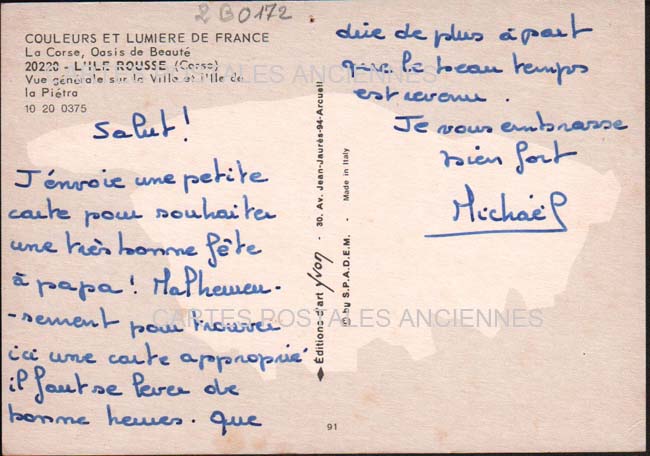 2B0172
COULEURS ET LUMIERE DE FRANCE
La Corse, Oasis de Beauté
20220 - L'ILE ROUSSE (Corse)
Vue générale sur la Ville et l'Ile de
la Piétra
10 20 0375
Salut!
J'envoie une petite
carte pour souhaiter
une très bonne fête
à papa! Malheureu-
-sement pour trouver
ici une carte approprié
il faut se lever de
bonne heures. Que
dire de plus à part
que le beau temps
est revenu.
Je vous embrasse
bien fort
Michaël
Éditions d'art Yvon - 30, Av. Jean-Jaurès-94-Arcueil
© by S.P.A.D.E.M. - Made in Italy
91
CARTES POSTALES ANCIENNES
CARTES POSTALES ANCIENNES